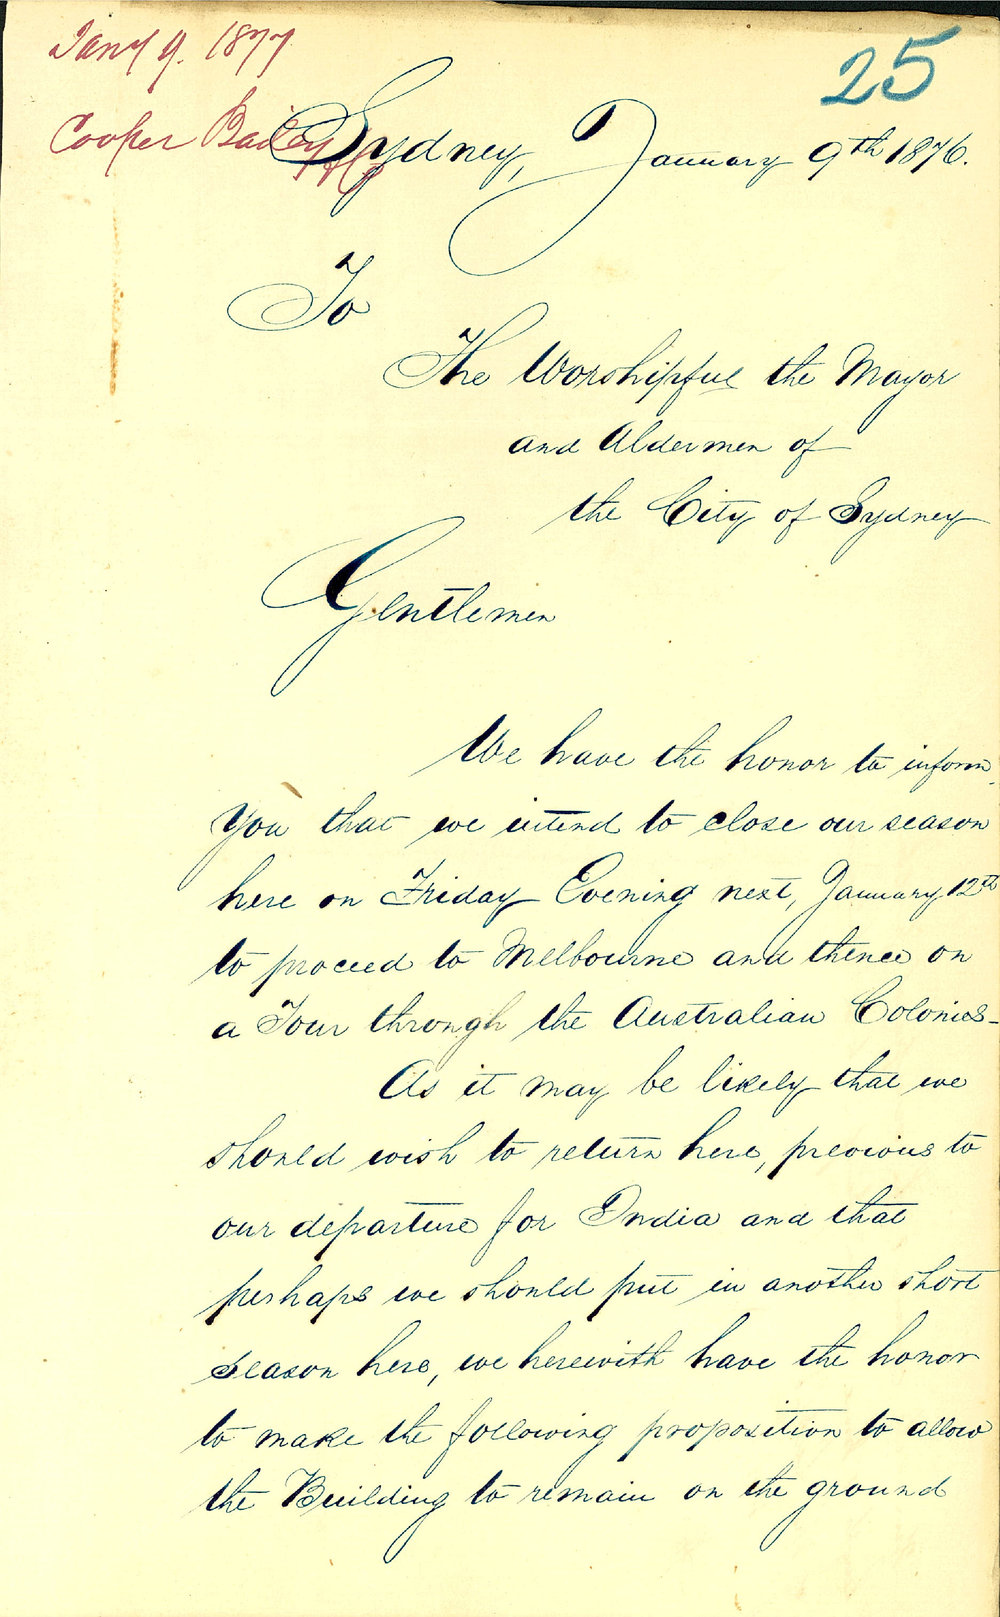 Jany 9. 1877
25
Cooper Bailey & Co
Sydney, January 9th 1876.
To
The Worshipful the Mayor
and Aldermen of
the City of Sydney
Gentlemen
We have the honor to inform
You that we intend to close our season
here on Friday Evening next, January 12th
to proceed to Melbourne and thence on
a Tour through the Australian Colonies-
As it may be likely that we
should wish to return here, previous to
our departure for India and that
perhaps we should put in another short
season here, we herewith have the honor
to make the following proposition to allow
the Building to remain on the ground